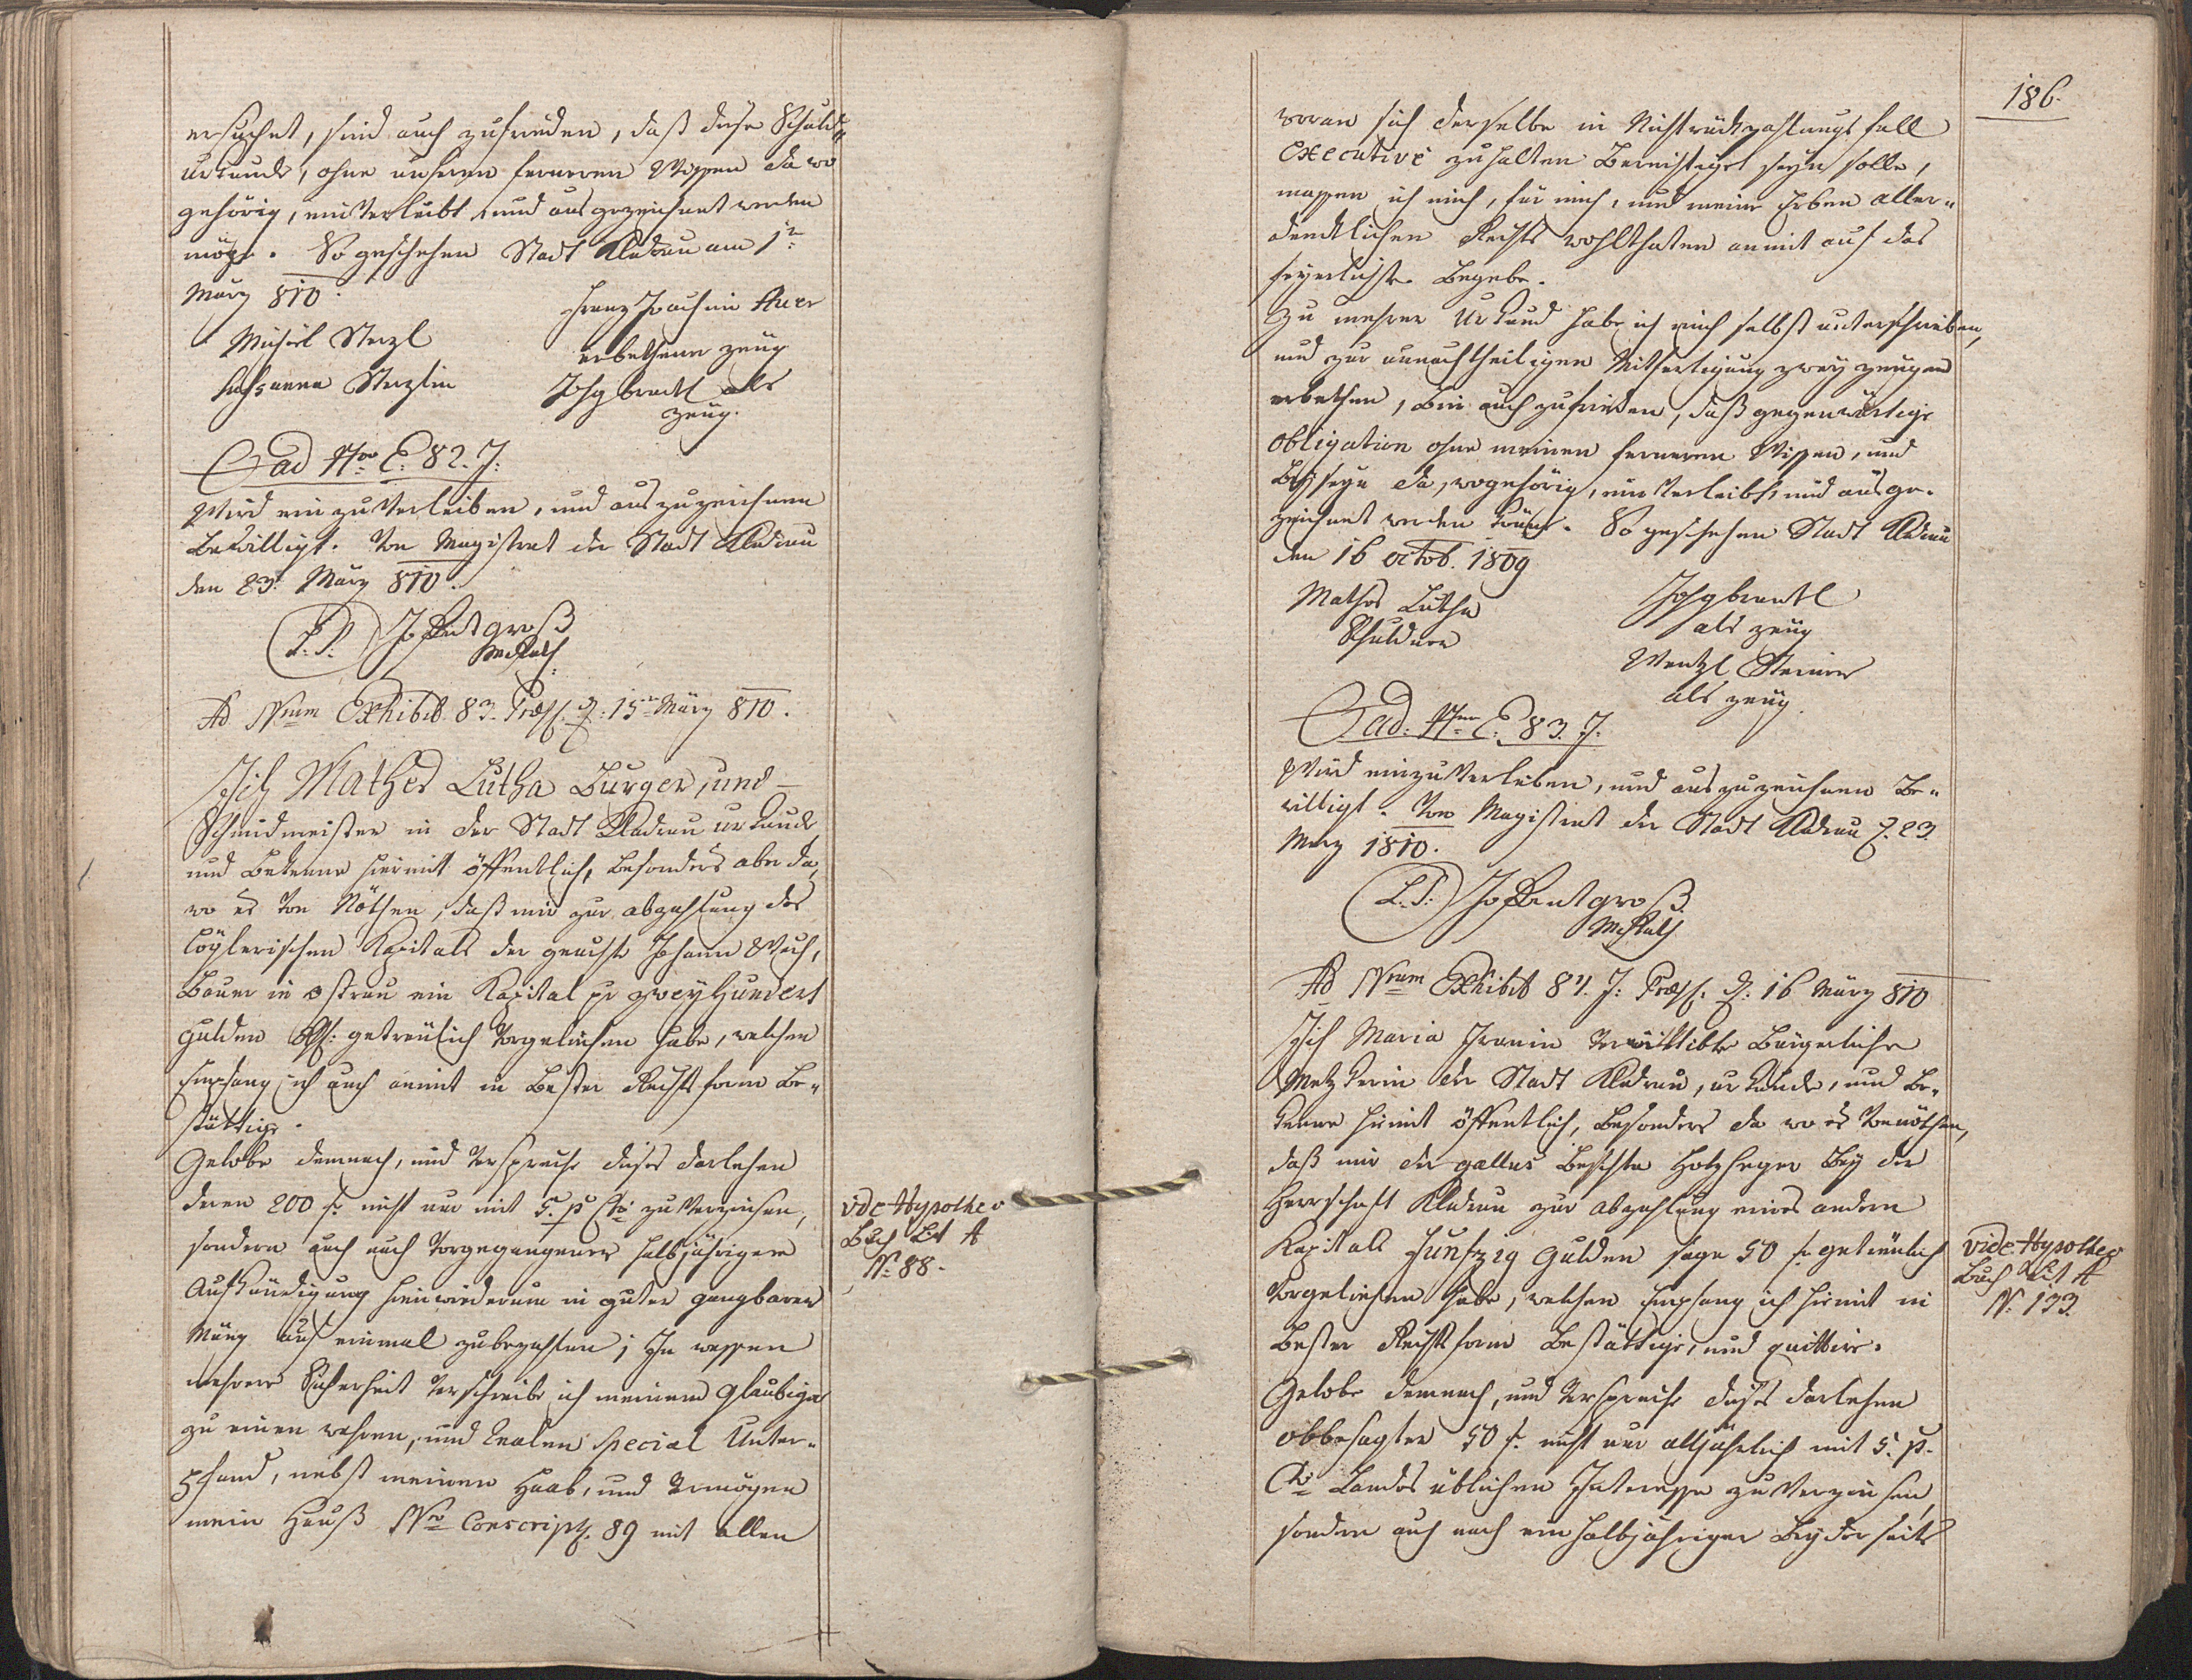 ersuchet, sind auch zufrieden, daß diese Schuld„
urkunde, ohne unseren ferneren Wissen da wo
gehörig, einverleibt, und ausgezeichnet werden
möge. So geschehen Stadt Kladrau am 1n
März 810.
Michäl Sterzl
Susanna Sterzlin
Franz Joachim Auer
erbethener Zeug
Joh Brentl als
Zeug.
ad Nro E. 82. J.
Wird einzuverleiben, und auszuzeichnen
bewilligt. Von Magistrat der Stadt Kladrau
den 23. März 810.
L. S. groß
Ad Nrum Exhibit 83. Praes. d. 15n März 810.
Ich Mathes Lutha Burger, und
Schmidmeister in der Stadt Kladrau urkunde
und bekenne hiermit öffentlich, besonders aber da,
wo es von Nöthen, daß mir zur abzahlung des
Kapitals der Johann
Bauer in ostrau ein Kapital pr zweyhundert
gulden getreulich vorgeliehen habe, welchen
Empfang ich auch anmit in bester Rechtsform be„
stättige.
Gelobe demnach, und verspreche dieses darlehen
deren 200 f. nicht nur mit 5. p Cto zu verzinsen,
sondern auch nach vorgegangener halbjähriger
Aufkündigung hinwiederum in guter gangbarer
Münz auf einmal zubezahlen; In wessen
mehrere Sicherheit verschreibe ich meinem glaubiger
zu einen wahren, und realen special Unter„
pfand, nebst meinen Haab, und vermögen
mein Hauß Nro Conscript. 89 mit allen
vide Hypothec
Buch Lit A
N: 88.
186.
woran sich derselbe in Nichtrückzahlungsfall
executive zuhalten berechtiget seyn solle,
massen ich mich, für mich, und meine Erben aller„
dendlichen Rechts wohlthaten anmit auf das
feyerlichste begebe.
Zu mehrer Urkund habe ich mich selbst unterschrieben,
und zur unnachtheiligen Mitfertigung zwey zeugen
erbethen, bin auch zufrieden, daß gegenwärtige
obligation ohne meinen ferneren Wissen, und
Beyseyn da, wo gehörig, einverleibt, und ausge„
zeichnet werden könne. So geschehen Stadt Kladrau
den 16 octob. 1809
Mathes Lutha
Schuldner
Joh Brentl
als zeug
Wentzl Steiner
als zeug
ad: Nrum E. 83. J.
Wird einzuverleiben, und auszuzeichnen be„
willigt. Von Magistrat der Stadt Kladrau d. 23.
März 1810.
L. S. groß
Ad Nrum Exhibit 84. J: Praes. d: 16 März 810
Ich Maria verwittibte Bürgerliche
Metzkerin der Stadt Kladrau, urkunde, und be„
kenne hiemit öffentlich, besonders da wo es vonnöthen,
daß mir der gallus Holzheger bey der
Herrschaft Kladrau zur abzahlung eines andern
Kapitals Funfzig Gulden sage 50 f. getreulich
vorgeliehen habe, welchen Empfang ich hiemit in
bester Rechtsform bestättige, und quittire.
Gelobe demnach, und verspreche dieses darlehen
obbesagter 50 f. nicht nur alljährlich mit 5. p.
Cto Landes üblichen Interesse zu verzinsen,
sondern auch nach ein halbjähriger beyderseits
vide Hypothec
Buch Lit A
N: 133.